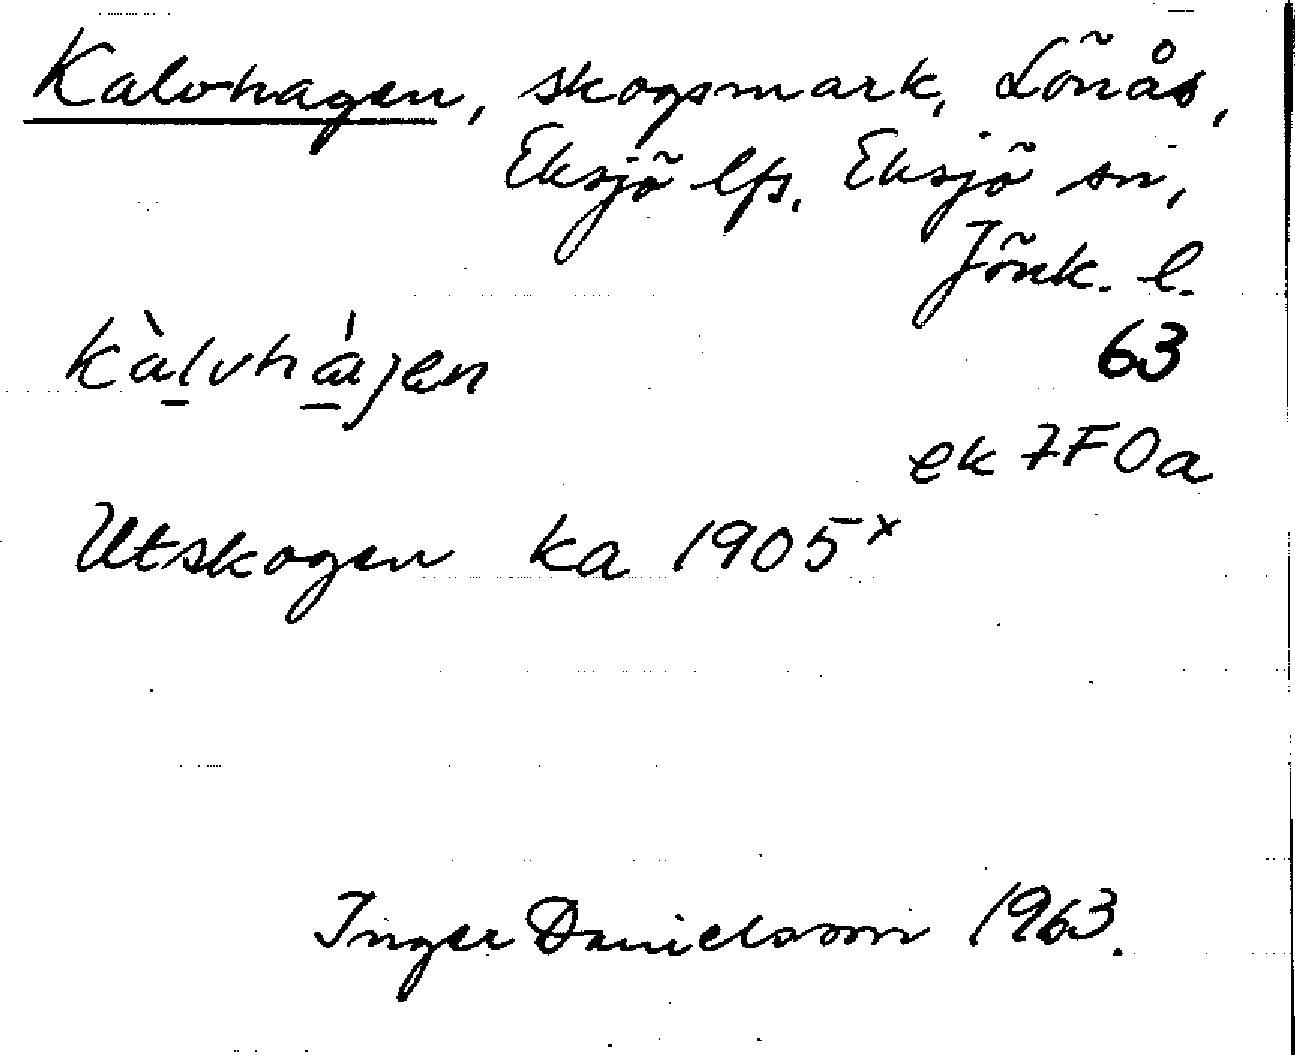 Kalvhagen, skogsmark, Lönås,
Eksjö lfs. Eksjö sn,
Jönk. l.
kàlvhájen 63
ek 7F0a
Utskogen ka 1905x
Inger Danielsson 1963.